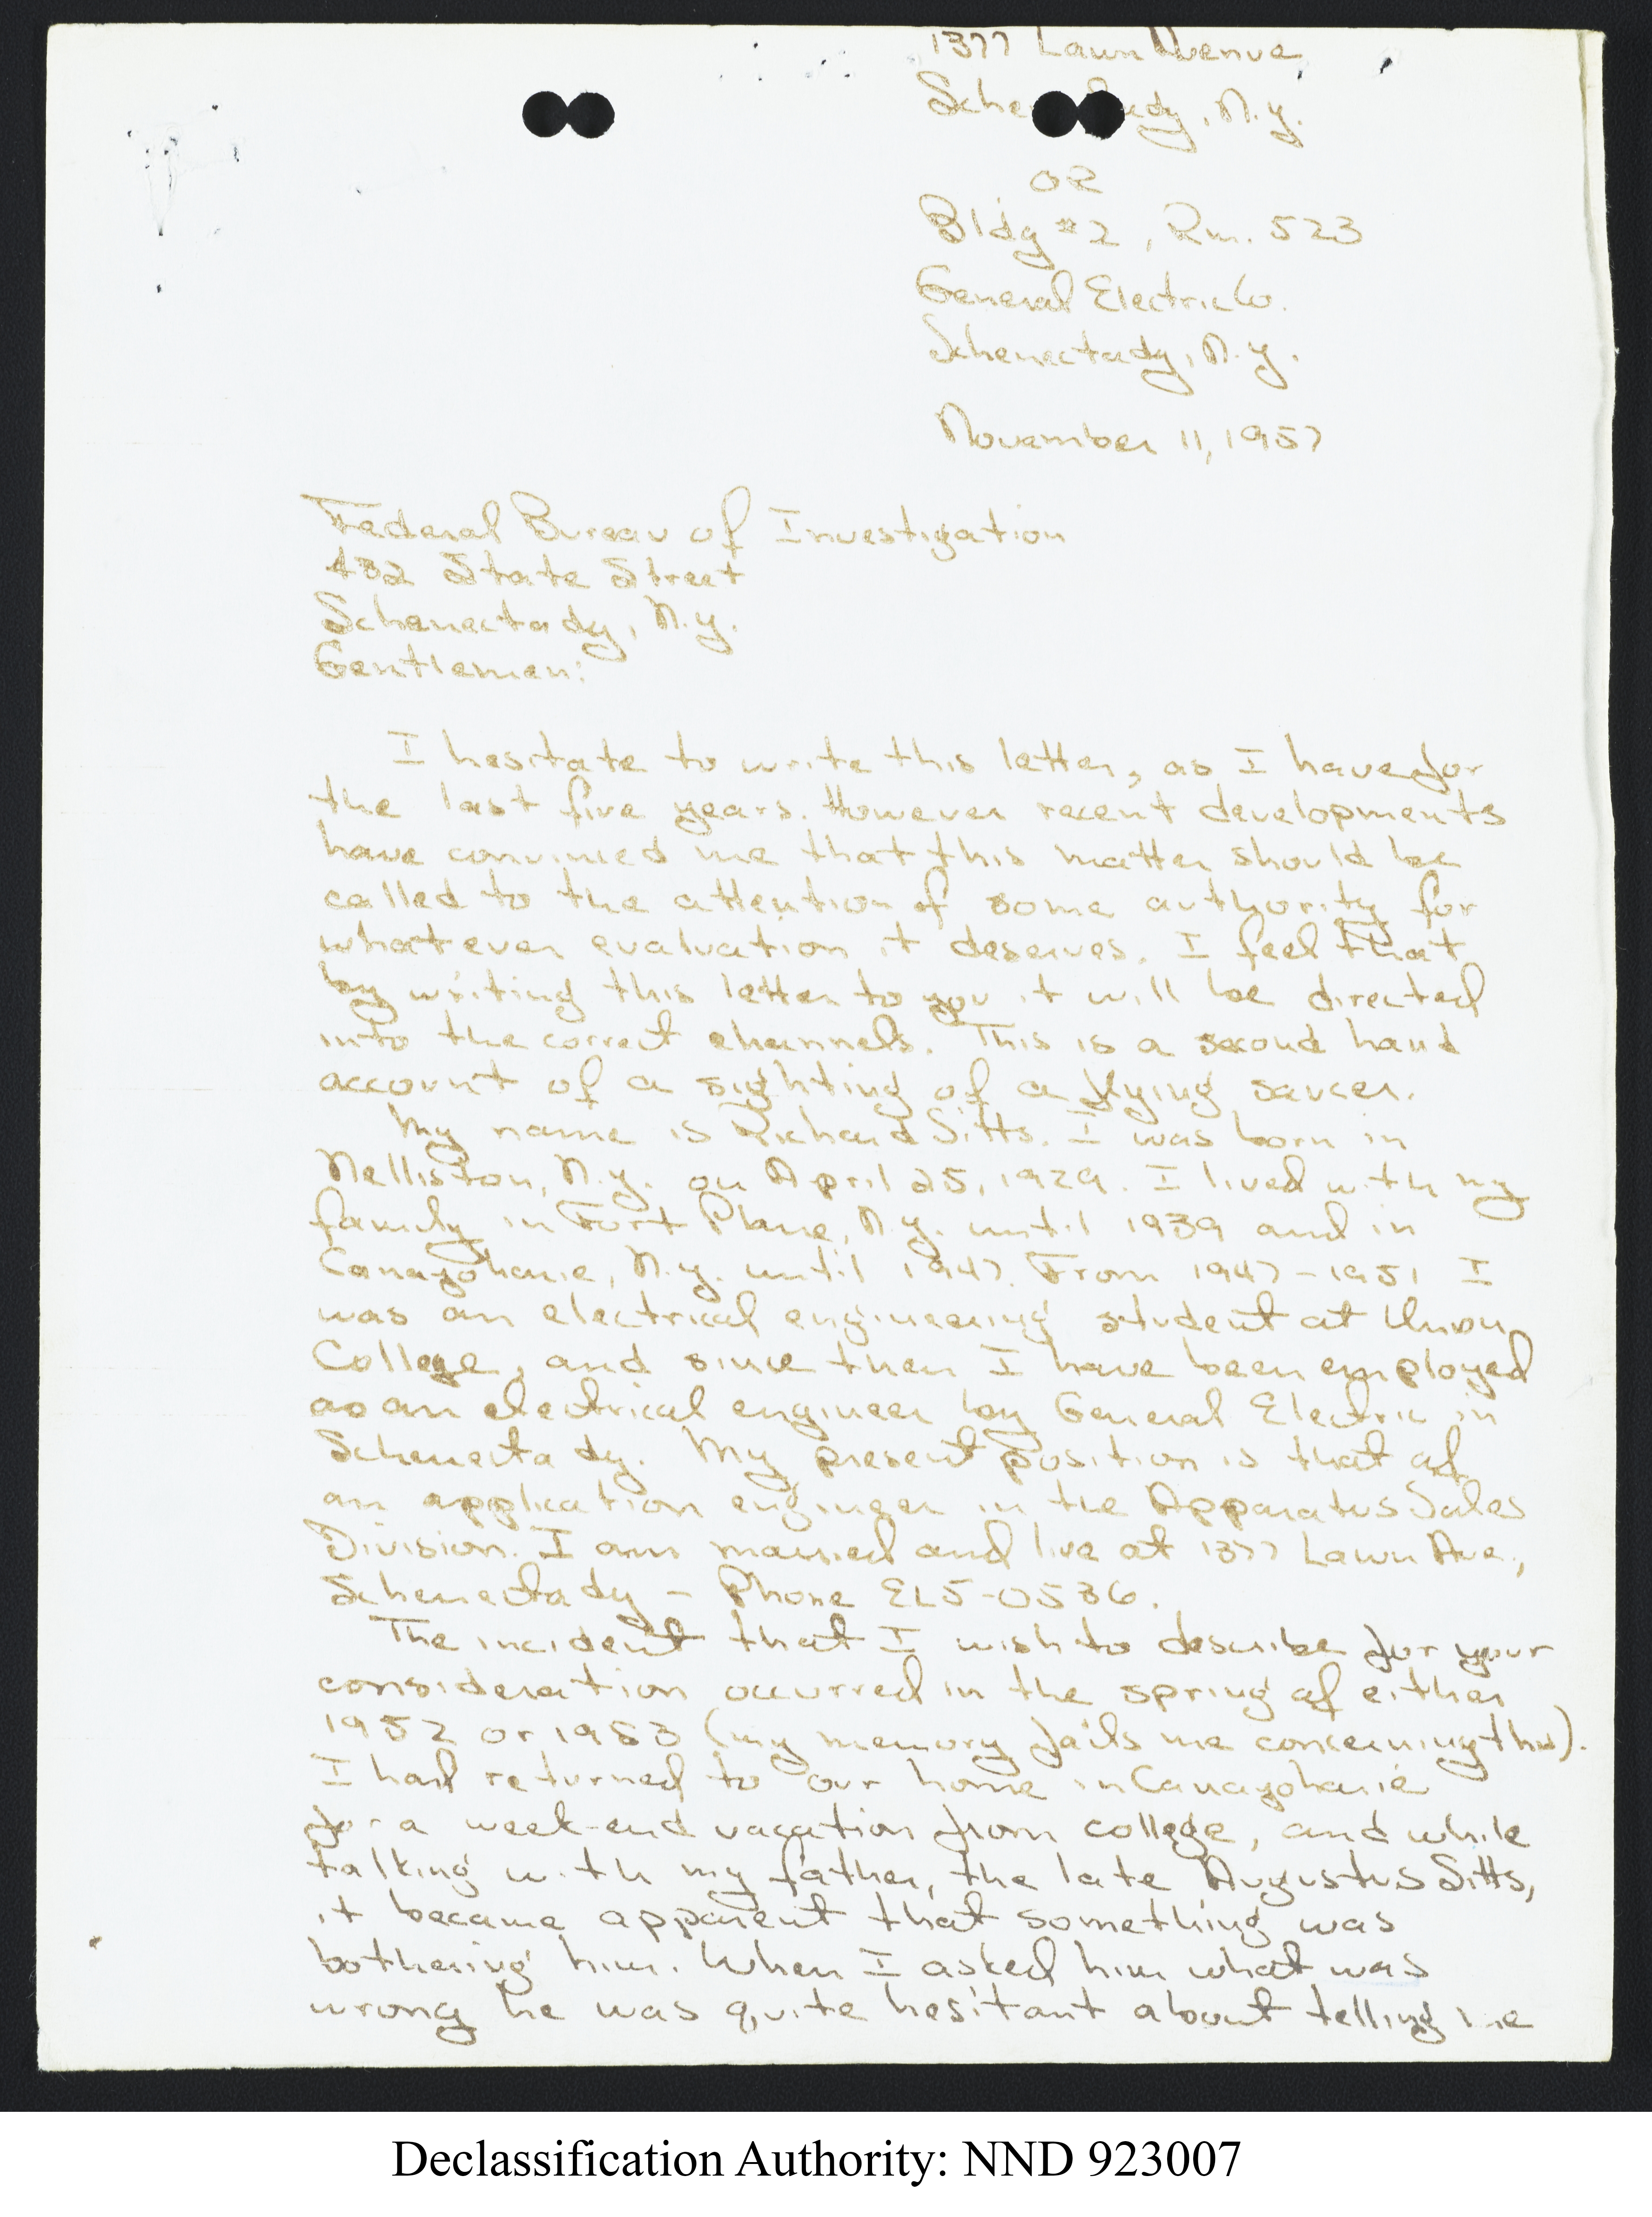 1377 Lawn Avenue
Schenectady, N.Y.
OR
Bldg #2, Rm. 523
General Electric Co.
Schenectady, N.Y.
November 11, 1957
Federal Bureau of Investigation
432 State Street
Schenectady, N.Y.
Gentlemen:
I hesitate to write this letter, as I have for
the last five years. However recent developments
have convinced me that this matter should be
called to the attention of some authority for
whatever evaluation it deserves. I feel that
by writing this letter to you it will be directed
into the correct channels. This is a second hand
account of a sighting of a flying saucer.
My name is Richard Sitts. I was born in
Nelliston, N.Y. on April 25, 1929. I lived with my
family in Fort Plane, N.Y. until 1939 and in
Canajoharie, N.Y. until 1947. From 1947-1951 I
was an electrical engineering student at Union
College, and since then I have been employed
as an electrical engineer by General Electric in
Schenectady. My present position is that of
an application engineer in the Apparatus Sales
Division. I am married and live at 1377 Lawn Ave.,
Schenectady - Phone EL5-0536.
The incident that I wish to describe for your
consideration occurred in the spring of either
1952 or 1953 (my memory fails me concerning this).
I had returned to our home in Canajoharie
for a week-end vacation from college, and while
talking with my father, the late Augustus Sitts,
it became apparent that something was
bothering him. When I asked him what was
wrong he was quite hesitant about telling me
Declassification Authority: NND 923007